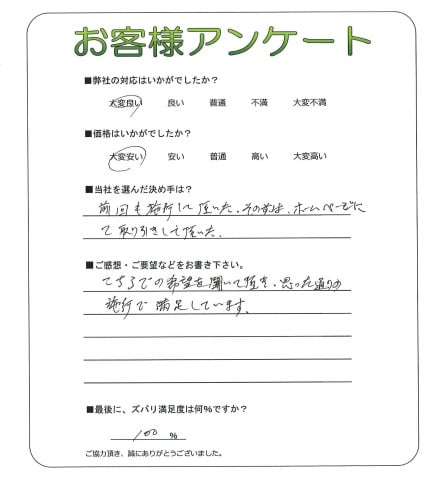 お客様アンケート
■弊社の対応はいかがでしたか？
大変良い 良い 普通 不満 大変不満
■価格はいかがでしたか？
大変安い 安い 普通 高い 大変高い
■当社を選んだ決め手は？
前回も施行して頂いた、その前は、ホームページに
て取り引きして頂いた、
■ご感想・ご要望などをお書き下さい。
こちらでの希望を聞いて頂き、思った通りの
施行で満足しています。
■最後に、ズバリ満足度は何％ですか？
100 ％
ご協力頂き、誠にありがとうございました。